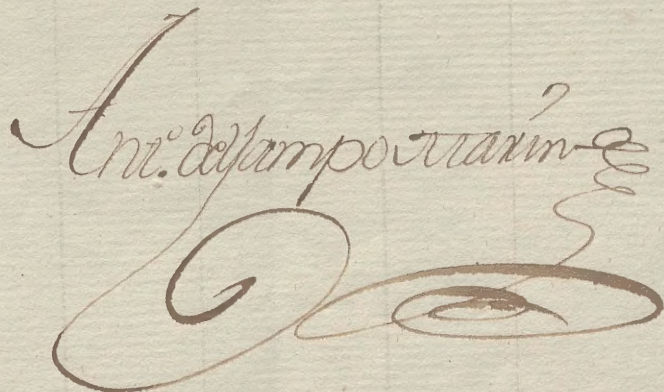 Ant.º del Campo Marin